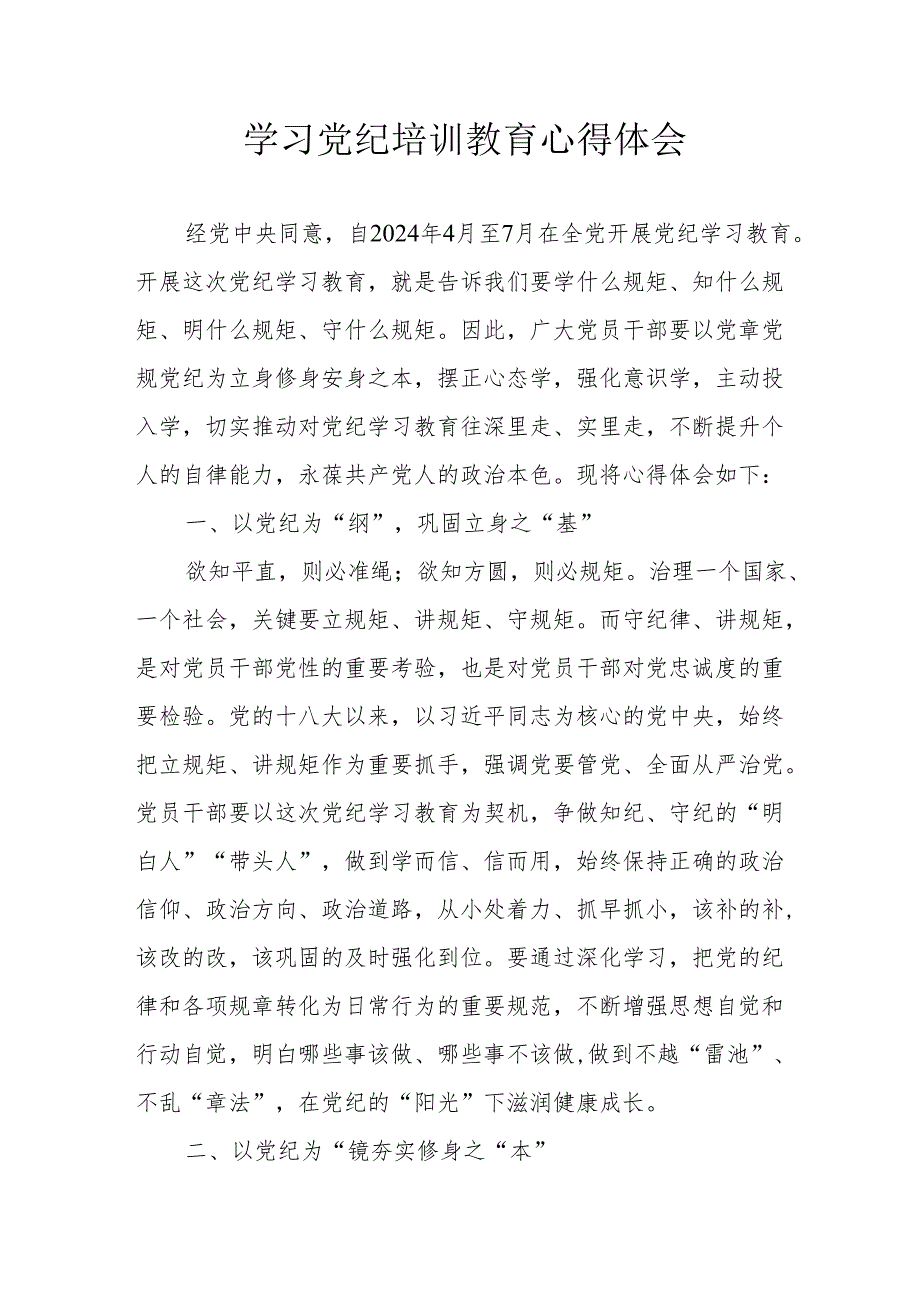 学习党纪培训教育心得体会
经党中央同意，自2024年4月至7月在全党开展党纪学习教育。
开展这次党纪学习教育，就是告诉我们要学什么规矩、知什么规
矩、明什么规矩、守什么规矩。因此，广大党员干部要以党章党
规党纪为立身修身安身之本，摆正心态学，强化意识学，主动投
入学，切实推动对党纪学习教育往深里走、实里走，不断提升个
人的自律能力，永葆共产党人的政治本色。现将心得体会如下：
一、以党纪为“纲”，巩固立身之“基”
欲知平直，则必准绳；欲知方圆，则必规矩。治理一个国家、
一个社会，关键要立规矩、讲规矩、守规矩。而守纪律、讲规矩，
是对党员干部党性的重要考验，也是对党员干部对党忠诚度的重
要检验。党的十八大以来，以习近平同志为核心的党中央，始终
把立规矩、讲规矩作为重要抓手，强调党要管党、全面从严治党。
党员干部要以这次党纪学习教育为契机，争做知纪、守纪的“明
白人”“带头人”，做到学而信、信而用，始终保持正确的政治
信仰、政治方向、政治道路，从小处着力、抓早抓小，该补的补，
该改的改，该巩固的及时强化到位。要通过深化学习，把党的纪
律和各项规章转化为日常行为的重要规范，不断增强思想自觉和
行动自觉，明白哪些事该做、哪些事不该做,做到不越“雷池”、
不乱“章法”，在党纪的“阳光”下滋润健康成长。
二、以党纪为“镜夯实修身之“本”